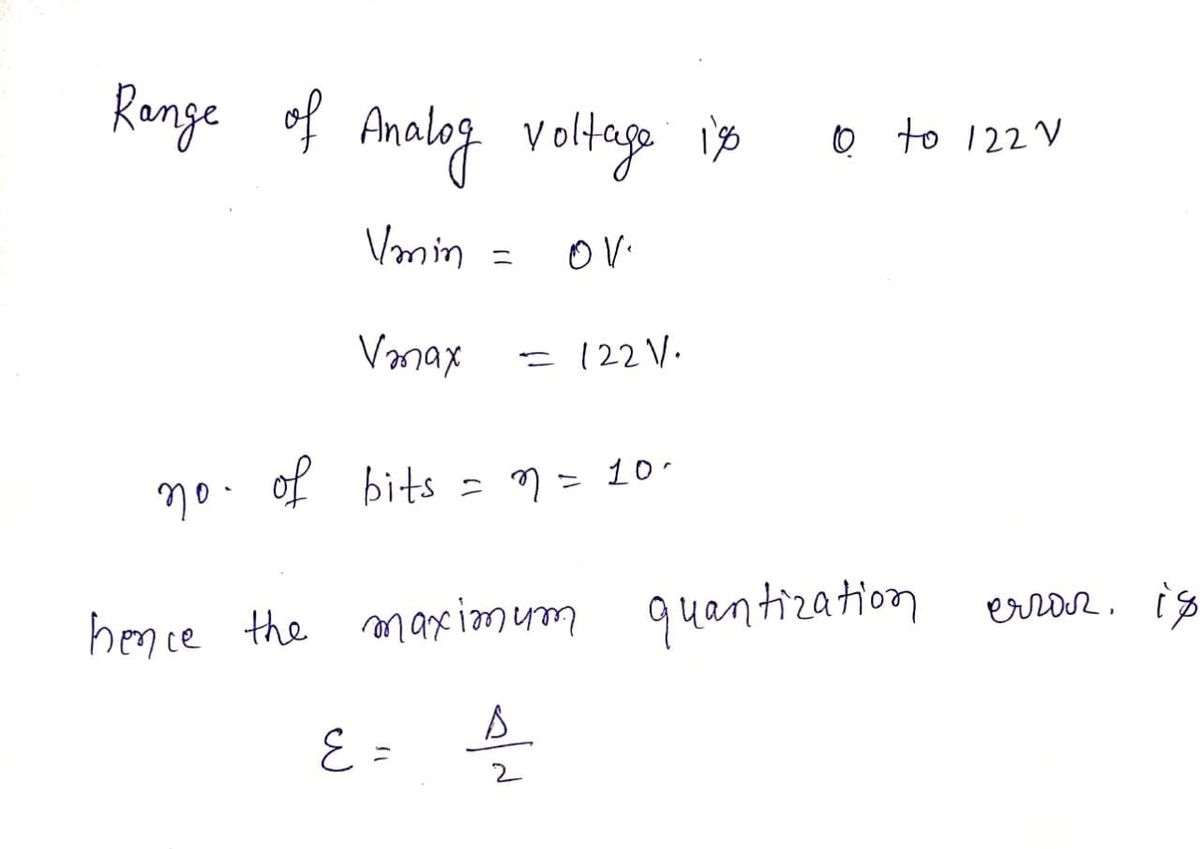 Range of Analog voltage is 0 to 122 V
Vmin = 0 V.
Vmax = 122 V.
no. of bits = n = 10.
hence the maximum quantization error. is
ε = Δ/2